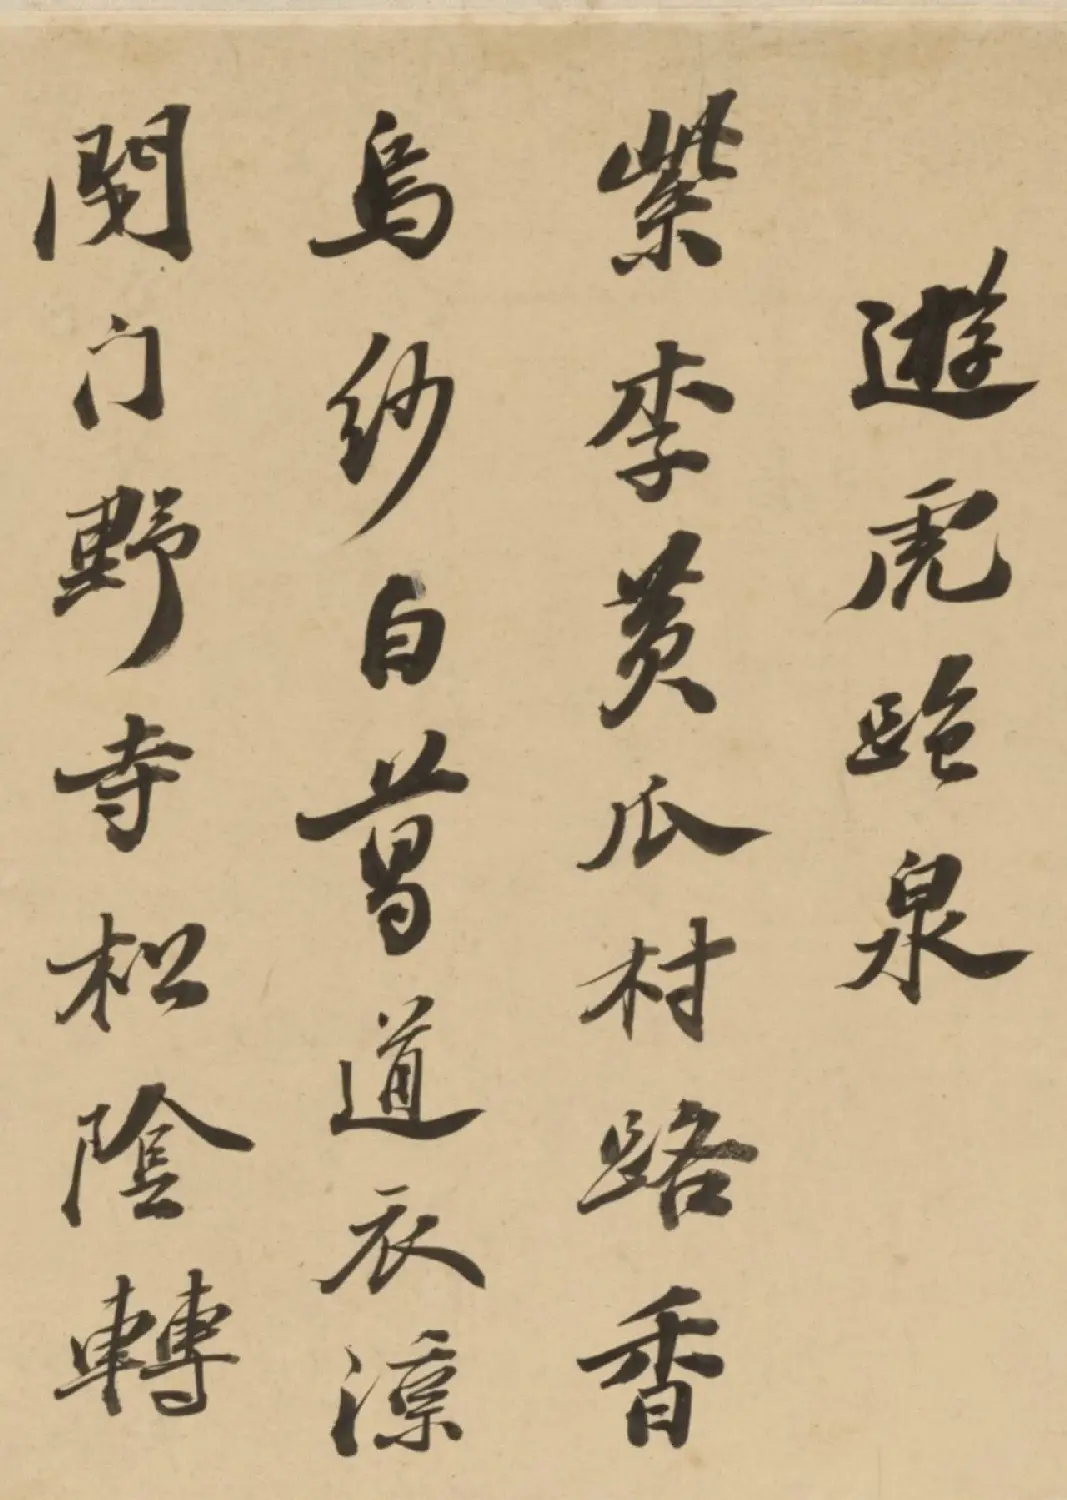 遊虎跑泉
紫李黃瓜村路香
烏紗白葛道衣涼
閉门野寺松陰轉